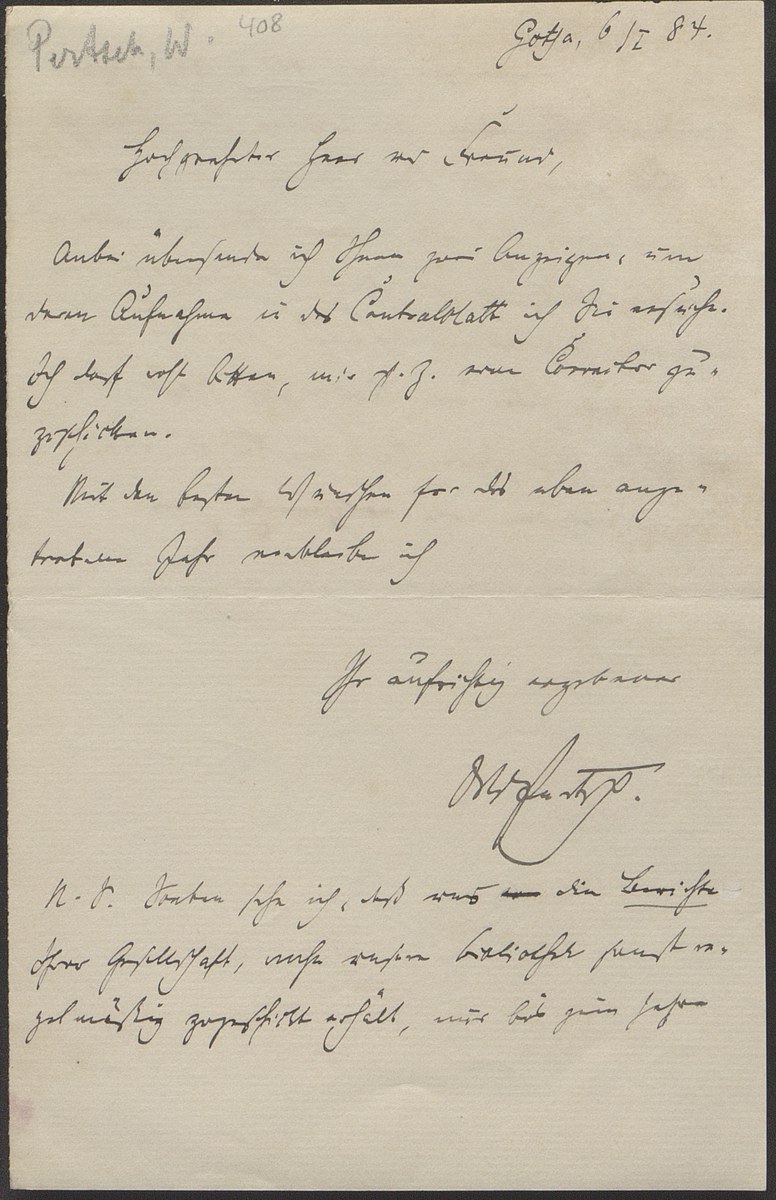 Pertsch, W. 408
Gotha, 6/I 84.
Hochgeehrter Herr und Freund,
Anbei übersende ich Ihnen zwei Anzeigen, um
deren Aufnahme in das Centralblatt ich Sie ersuche.
Ich darf wohl bitten, mir s. Z. eine Correctur zu-
zuschicken.
Mit den besten Wünschen für das eben ange-
tretene Jahr verbleibe ich
Ihr aufrichtig ergebener
W. Pertsch.
N. S. Soeben sehe ich, daß uns die Berichte
Ihrer Gesellschaft, welche unsere Bibliothek sonst re-
gelmäßig zugeschickt erhält, nur bis zum Jahre